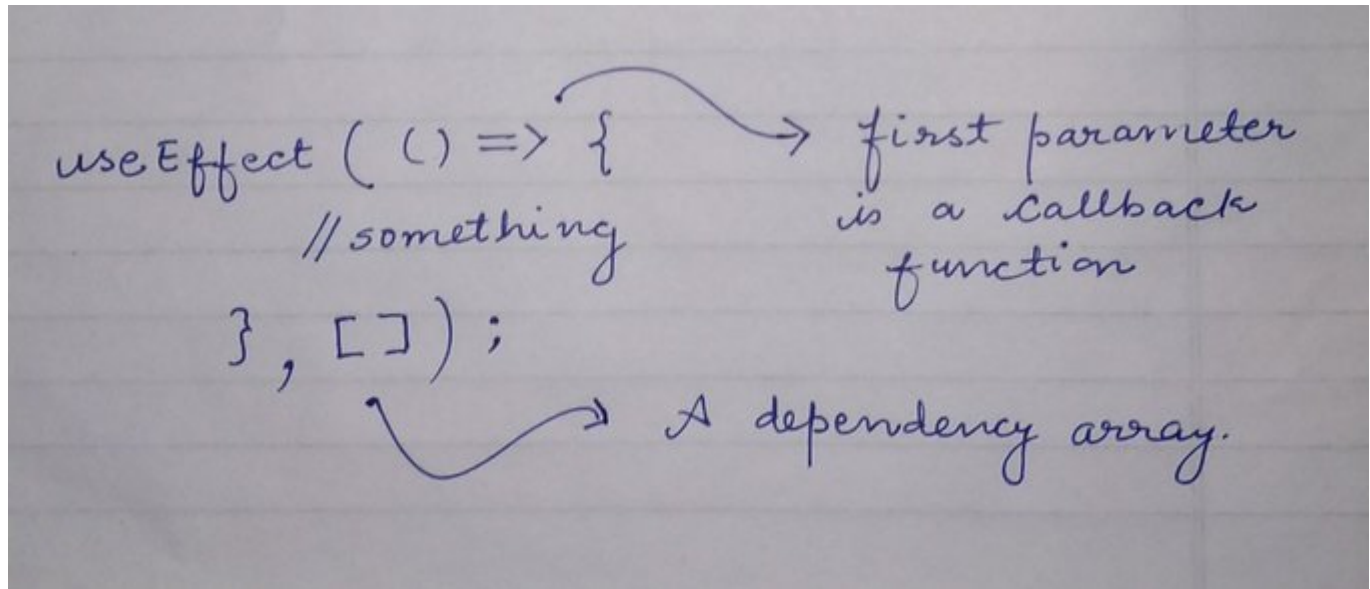 useEffect ( () => {
first parameter
is a callback
function
//something
} , [] ) ;
A dependency array.